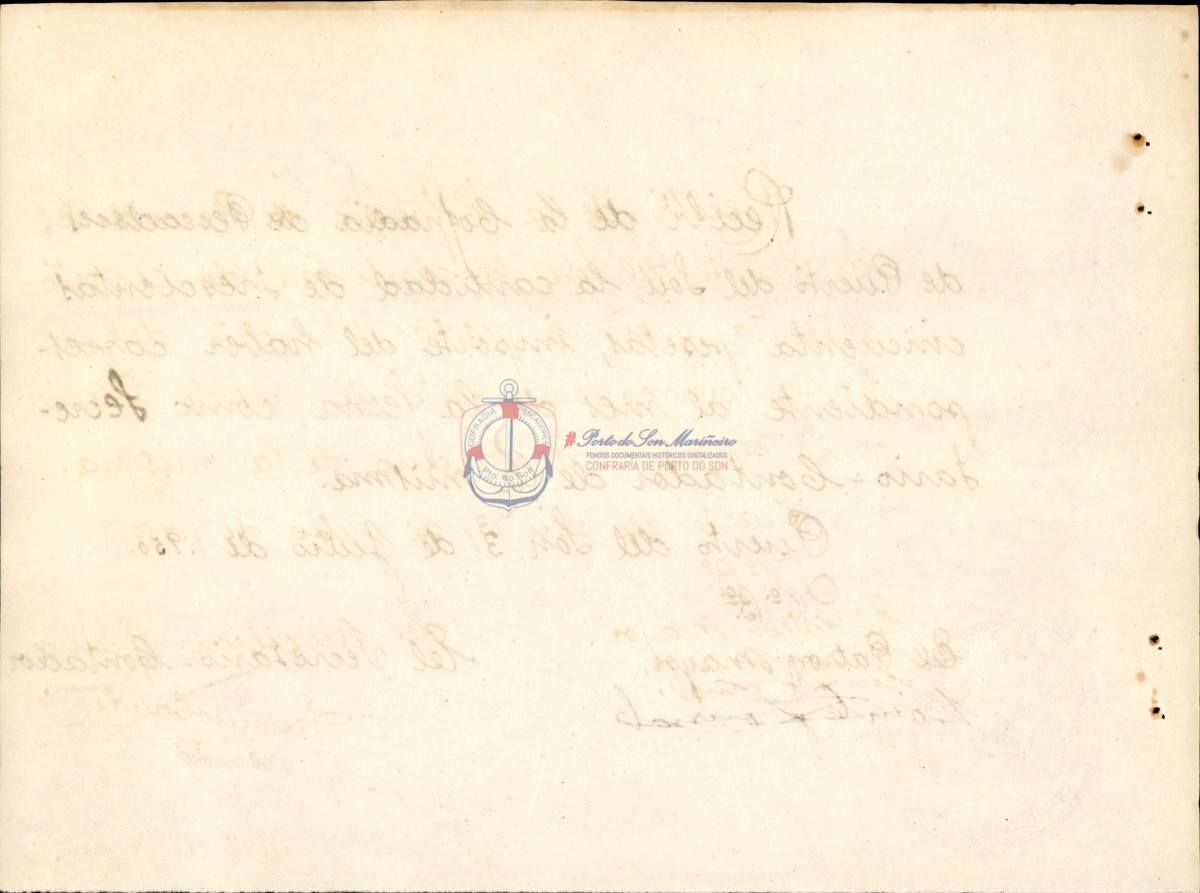 Recibí de la Cofradia de Pescadores
de Puerto del Son la cantidad de trescientas
cincuenta pesetas, importe del haber corres-
pondiente al mes de la fecha como Secre-
tario-Contador de la misma.
Puerto del Son, 31 de Julio de 1.950
Vº Bº
El Patron Mayor
El Secretario-Contador
COFRADIA PESCADORES
Pto. do Son
#PortodoSonMariñeiro
FONDOS DOCUMENTAIS HISTÓRICOS DIXITALIZADOS
CONFRARIA DE PORTO DO SON